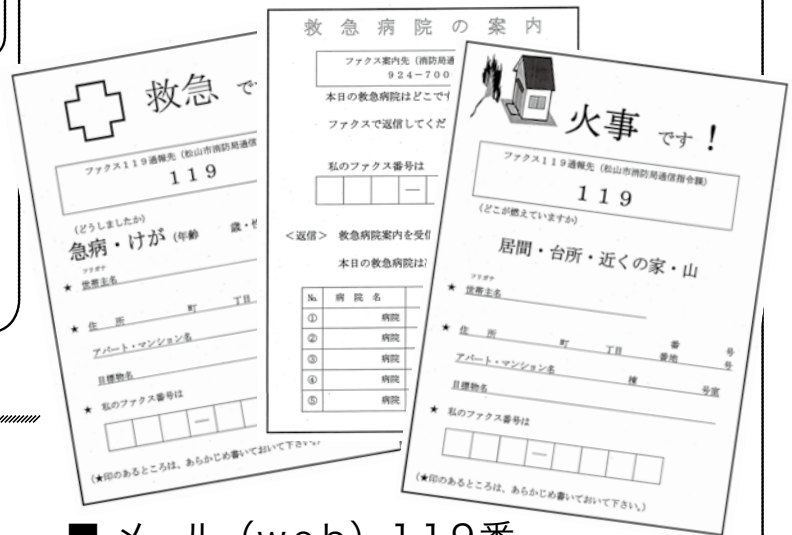 救急 で
ファクス１１９通報先（松山市消防局通信
１１９
（どうしましたか）
急病・けが（年齢　歳・性
フリガナ
★ 世帯主名
★ 住　所　町　丁目
アパート・マンション名
目標物名
★ 私のファクス番号は
―
（★印のあるところは、あらかじめ書いておいて下さい。）
救急病院の案内
ファクス案内先（消防局通
９２４－７００
本日の救急病院はどこで
ファクスで返信してくだ
私のファクス番号は
―
＜返信＞　救急病院案内を受信
本日の救急病院は
№　病　院　名
①　病院
②　病院
③　病院
④　病院
⑤　病院
火事 です！
ファクス１１９通報先（松山市消防局通信指令課）
１１９
（どこが燃えていますか）
居間・台所・近くの家・山
フリガナ
★ 世帯主名
★ 住　所　町　丁目　番　号
番地　号
アパート・マンション名　棟　号室
目標物名
★ 私のファクス番号は
―
（★印のあるところは、あらかじめ書いておいて下さい。）
■メール（web）１１９番